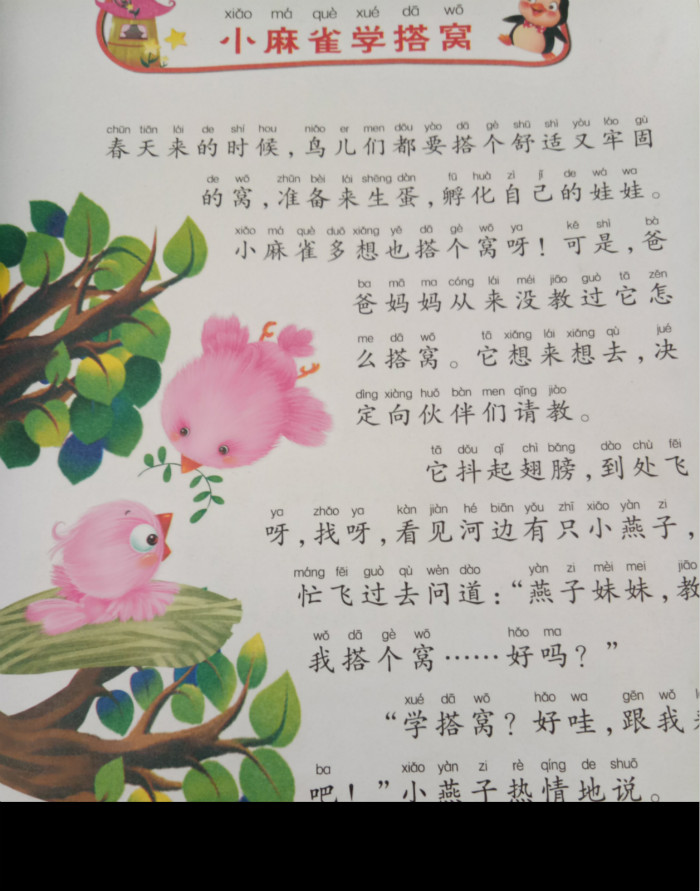 xiǎo má què xué dā wō
小麻雀学搭窝
chūn tiān lái de shí hou niǎo er men dōu yào dā gè shū shì yòu láo gù
春天来的时候，鸟儿们都要搭个舒适又牢固
de wō zhǔn bèi lái shēng dàn fū huà zì jǐ de wá wa
的窝，准备来生蛋，孵化自己的娃娃。
xiǎo má què duō xiǎng yě dā gè wō ya kě shì bà
小麻雀多想也搭个窝呀！可是，爸
ba mā ma cóng lái méi jiāo guò tā zěn
爸妈妈从来没教过它怎
me dā wō tā xiǎng lái xiǎng qù jué
么搭窝。它想来想去，决
dìng xiàng huǒ bàn men qǐng jiào
定向伙伴们请教。
tā dǒu qǐ chì bǎng dào chù fēi
它抖起翅膀，到处飞
ya zhǎo ya kàn jiàn hé biān yǒu zhī xiǎo yàn zi
呀，找呀，看见河边有只小燕子，
máng fēi guò qù wèn dào yàn zi mèi mei jiāo
忙飞过去问道：“燕子妹妹，教
wǒ dā gè wō hǎo ma
我搭个窝……好吗？”
xué dā wō hǎo wa gēn wǒ
“学搭窝？好哇，跟我
ba xiǎo yàn zi rè qíng de shuō
吧！”小燕子热情地说。